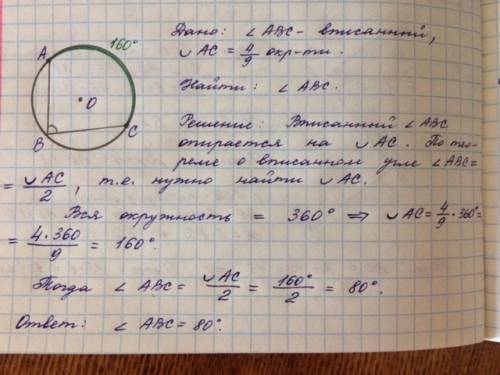 A
160°
O
B
C
Дано: ∠ABC - вписанный,
◡AC = 4/9 окр-ти.
Найти: ∠ABC.
Решение: Вписанный ∠ABC
опирается на ◡AC. По тео-
реме о вписанном угле ∠ABC=
= ◡AC/2, т.е. нужно найти ◡AC.
Вся окружность = 360° ⇒ ◡AC = 4/9 · 360° =
= 4·360/9 = 160°.
Тогда ∠ABC = ◡AC/2 = 160°/2 = 80°.
Ответ: ∠ABC = 80°.